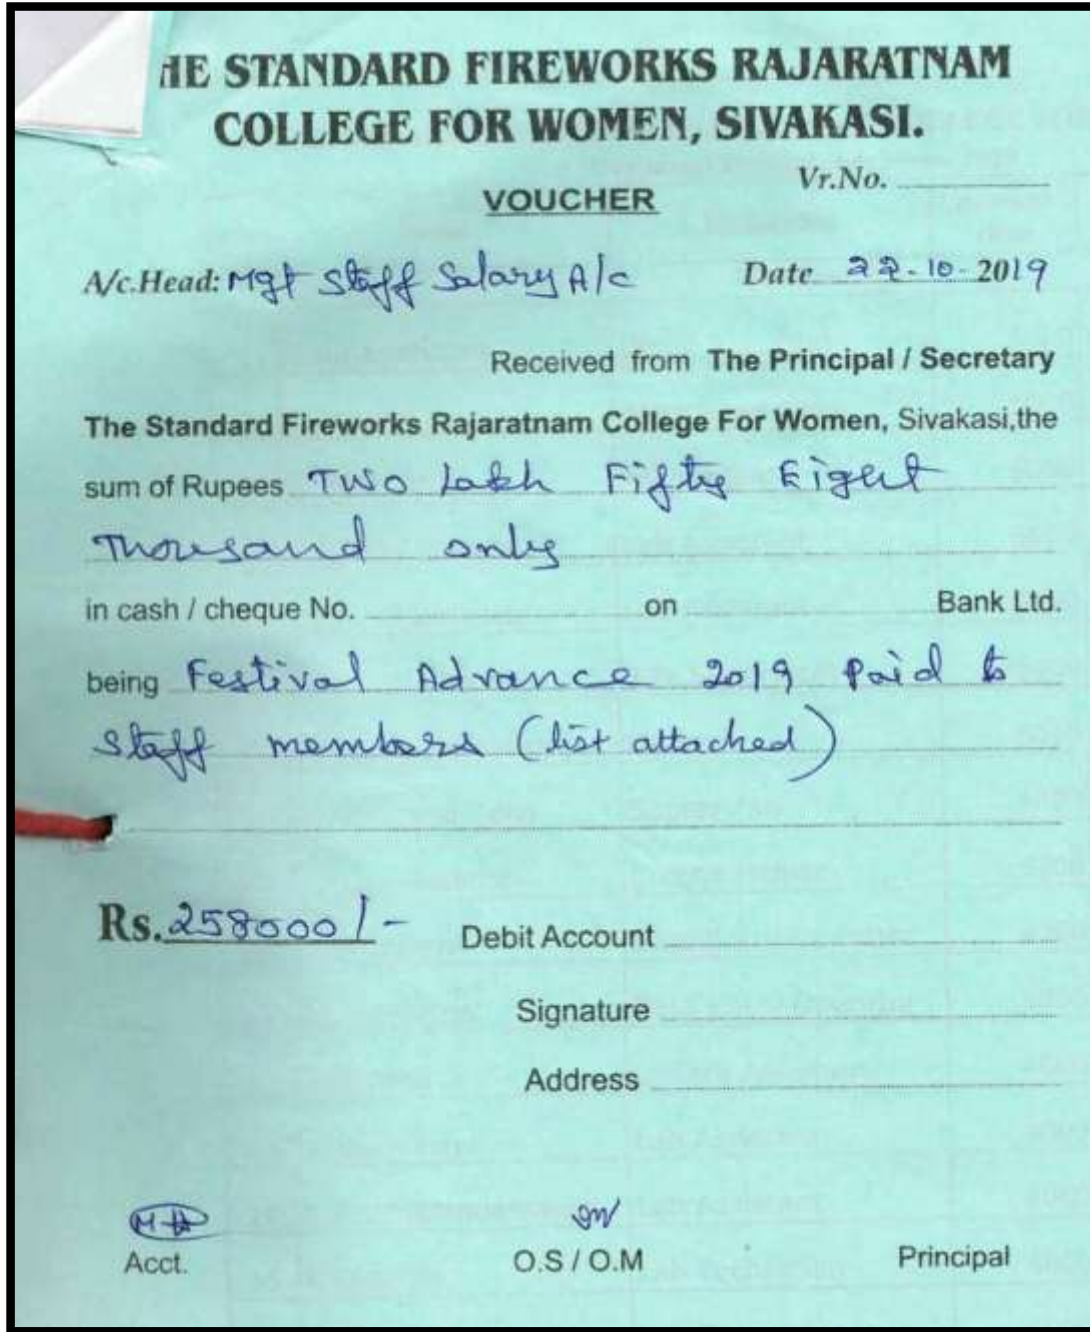 HE STANDARD FIREWORKS RAJARATNAM
COLLEGE FOR WOMEN, SIVAKASI.
Vr.No.
VOUCHER
A/c.Head: Mgt Staff Salary A/c Date 22-10-2019
Received from The Principal / Secretary
The Standard Fireworks Rajaratnam College For Women, Sivakasi,the
sum of Rupees Two Lakh Fifty Eight
Thousand only
in cash / cheque No. on Bank Ltd.
being Festival Advance 2019 Paid to
staff members (list attached)
Rs. 258000/- Debit Account
Signature
Address
Acct. O.S / O.M Principal